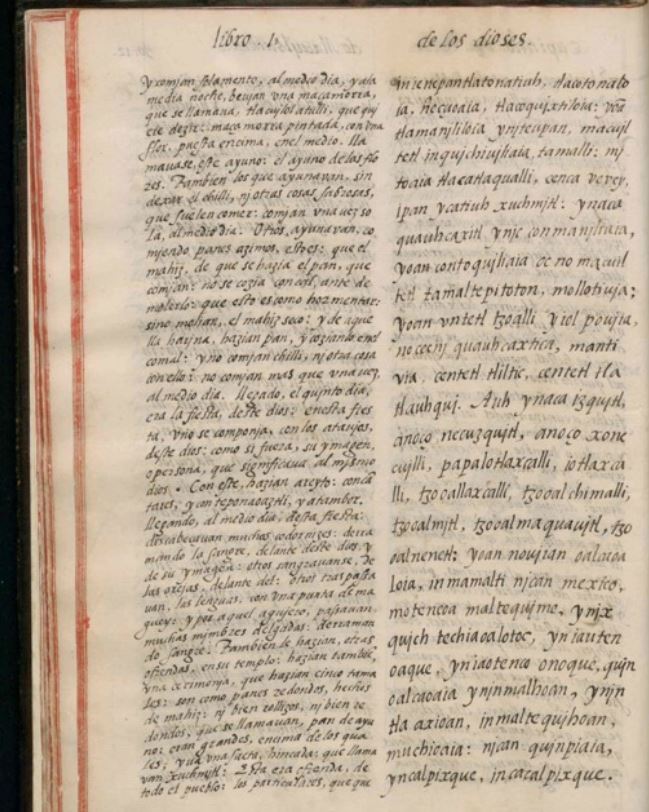 libro 1.
de los dioses.
y comjan solamente, al medio dia, y a la
media noche, beujan vna maçamorra,
que se llamaua, tlacujlolatulli, que quj
ere dezir: maçamorra pintada, con vna
flor, puesta encima, en el medio. lla
mauase, este ayuno: el ayuno de las flo
res. Tambien los que ayunavan, sin
dexar el chilli, nj otras cosas sabrosas,
que suelen comer: comjan vna vez so
la, al medio dia. Otros, ayunavan, co
mjendo panes azimos, esto es: que el
mahiz, de que se hazia el pan, que
comjan: no se cozia con cal, ante de
molerlo: que esto es como hormentar:
sino molian, el mahiz seco: y de aque
lla harina, hazian pan, y coziando en el
comal: y no comjan chilli, nj otra cosa
con ello: no comjan mas que vna vez,
al medio dia. llegado, el quinto dia,
era la fiesta, deste dios: en esta fies
ta, vno se componja, con los atavjos,
deste dios: como si fuera, su ymagen,
o persona, que significaua al mjsmo
dios. Con este, hazian areyto: con cã
tares, y con teponaoaztli, y atambor.
llegando, al medio dia: desta fiesta:
descabeçauan muchas codornizes: derra
mando la sangre, delante deste dios, y
de su ymagen: otros sangrauanse, de
las orejas, delante del: otros traspasa
uan, las lenguas, con vna punta de ma
guey: y por aquel agujero, passauan
muchas mjmbres delgadas: derraman
do sangre. Tambien le hazian, otras
ofrendas, en su templo: hazian tambiẽ,
vna cerimonja, que hazian cinco tama
les: son como panes redondos, hechos
de mahiz: nj bien rollizos, nj bien re
dondos, que se llamauan, pan de ayu
no: eran grandes, encima de los qua
les: yua vna saeta, hincada: que llama
van xuchmjtl: Esta era ofrenda, de
todo el pueblo: los particulares, que que
in ienepantlatonatiuh, tlacotonalo
ia, neçuoaia, tlacoqujxtiloia: yoã
tlamanjliloia yn jteupan, macujl
tetl in qujchiujliaia, tamalli: mj
toaia tlacatlaqualli, cenca vevey,
ipan ycatiuh xuchmjtl: yn aca
quauhcaxitl ynjc conmanjliaia,
yoan contoqujliaia oc no macujl
tetl tamaltepitoton, mollo tiuja:
yoan vntetl tzoalli yiel poujia,
no cecnj quauhcaxtica, manti
via, centetl tliltic, centetl tla
tlauhquj. Auh yn aca izqujtl,
anoço necuzqujtl, anoço xone
cujlli, papalotlaxcalli, iotlaxca
lli, tzooallaxcalli, tzooalchimalli,
tzooalmjtl, tzooalmaquavitl, tzo
oalnenetl: yoan novian oalaoa
loia, in mamalti njcan mexico,
motenoa maltequjme, yn jx
qujch techiaoaloloc, yn iauten
oaque, yn iaotenco onoque, qujn
oalcaoaia yn jnmalhoan, yn jn
tlaaxioan, in maltequjhoan,
muchioaia: njcan qujnpiaia,
yn calpixque, in cacalpixque.